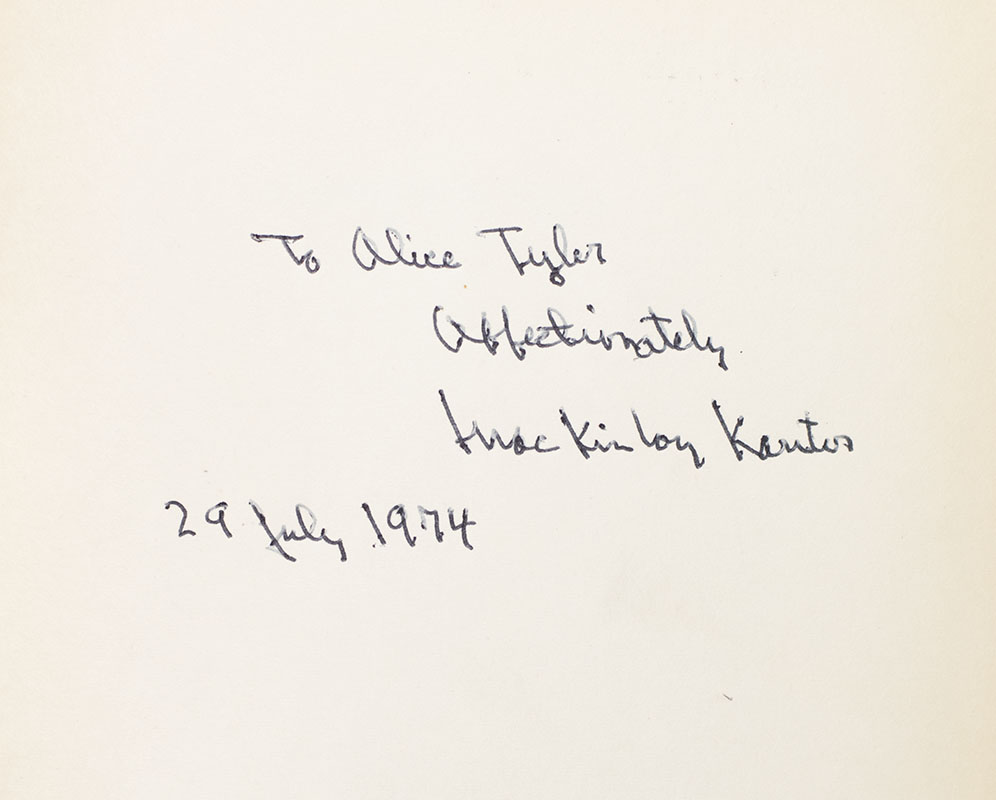 To Alice Tyler
Affectionately
MacKinlay Kantor
29 July 1974